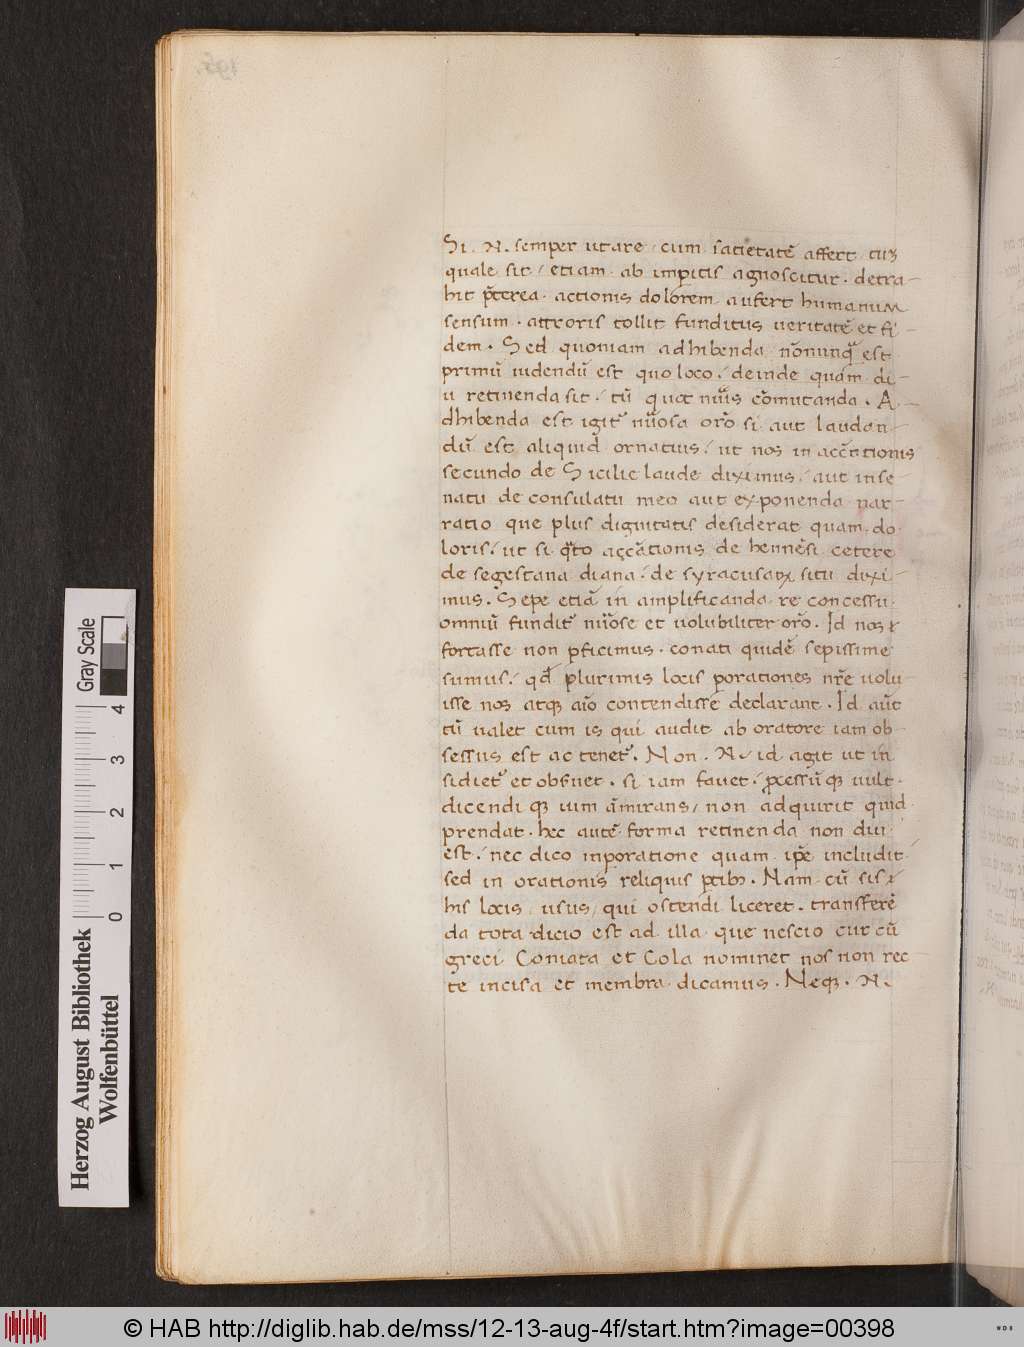 Si . N . semper utare . cum satietatē affert tuꝫ
quale sit / etiam ab imp̱itis agnoscitur . detra-
hit p̄terea . actionis dolorem aufert humanum
sensum . attroris tollit funditus ueritatē et fi-
dem . Sed quoniam adhibenda nōnunq̄ est
primū uidendū est quo loco / deinde quam di-
u retinenda sit / tū quot mōis cōmutanda . A-
dhibenda est igit̄ nūosa orō si aut laudan-
dū est aliquid ornatius / ut nos in accūationis
secundo de Sicilie laude diximus / aut in se-
natu de consulatu meo aut exponenda nar-
ratio que plus dignitatis desiderat quam do-
loris / ut si q̄to accūationis de hennēsi cetere
de segestana diana / de syracusaꝝ situ dixi-
mus . Sepe etiā in amplificanda re concessu
omniū fundit̄ nūose et uolubiliter orō . Id nos
fortasse non ꝑficimus . conati quidē sepissime
sumus / qd̄ plurimis locis ꝑorationes nr̄e uolu
isse nos atqꝫ aīo contendisse declarant . Id aūt
tū ualet cum is qui audit ab oratore iam ob-
sessus est ac tenet̄ . Non . N . id agit ut in
sidiet̄ et obs̄uet . si iam fauet / ꝓcessūqꝫ uult
dicendi qꝫ uim āmirans / non adquirit quid
prendat . hec autē forma retinenda non diu
est / nec dico in ꝑoratione quam ip̄e includit
sed in orationis reliquis ꝑtibꝫ . Nam cū sis
his locis usus / qui ostendi liceret . transferē
da tota dicio est ad illa que nescio cur cū
greci Comata et Cola nominet nos non rec
te incisa et membra dicamus . Neqꝫ . N .
Herzog August Bibliothek
Wolfenbüttel
Gray Scale
0 1 2 3 4
© HAB http://diglib.hab.de/mss/12-13-aug-4f/start.htm?image=00398